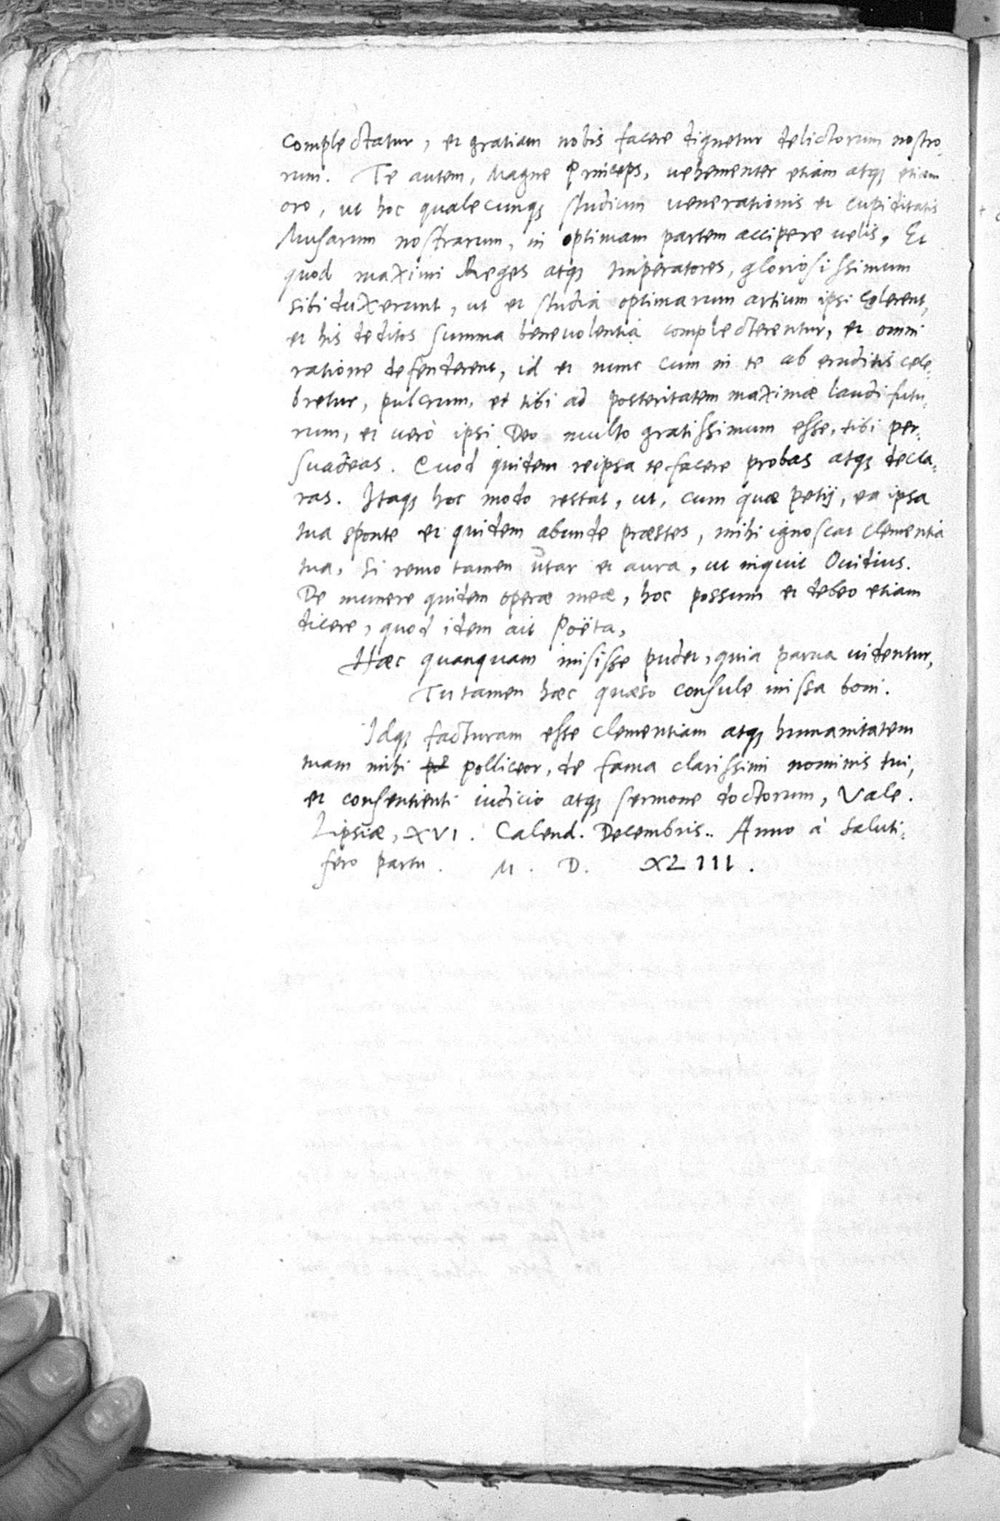 complectatur, et gratiam nobis facere dignetur delictorum nostro,
rum. Te autem, Magne Princeps, vehementer etiam atq; etiam
oro, ut hoc qualecunq; studium venerationis et cupiditatis
Musarum nostrarum, in optimam partem accipere velis. Et
quod maximi Reges atq; Imperatores, gloriosissimum
sibi duxerunt, ut et studia optimarum artium ipsi colerent,
et his deditos summa benevolentia complecterentur, et omni
ratione defenderent, id et nunc cum in te ab eruditis cele,
bretur, pulcrum, et tibi ad posteritatem maximæ laudi futu,
rum, et verò ipsi Deo multo gratissimum esse, tibi per,
suadeas. Quod quidem reipsa te facere probas atq; decla,
ras. Itaq; hoc modo restat, ut, cum quæ petij, ea ipsa
tua sponte et quidem abunde præstes, mihi ignoscat clementia
tua, Si remo tamen utar et aura, ut inquit Ouidius.
De munere quidem operæ meæ, hoc possum et debeo etiam
dicere, quod idem ait Poëta,
Hæc quanquam misisse pudet, quia parua uidentur,
Tu tamen hæc quæso consule missa boni.
Idq; facturam esse clementiam atq; humanitatem
tuam mihi polliceor, de fama clarissimi nominis tui,
et consentienti iudicio atq; sermone doctorum, Vale.
Lipsiæ, XVI. Calend. Decembris.. Anno à saluti,
fero partu. M. D. XLIII.